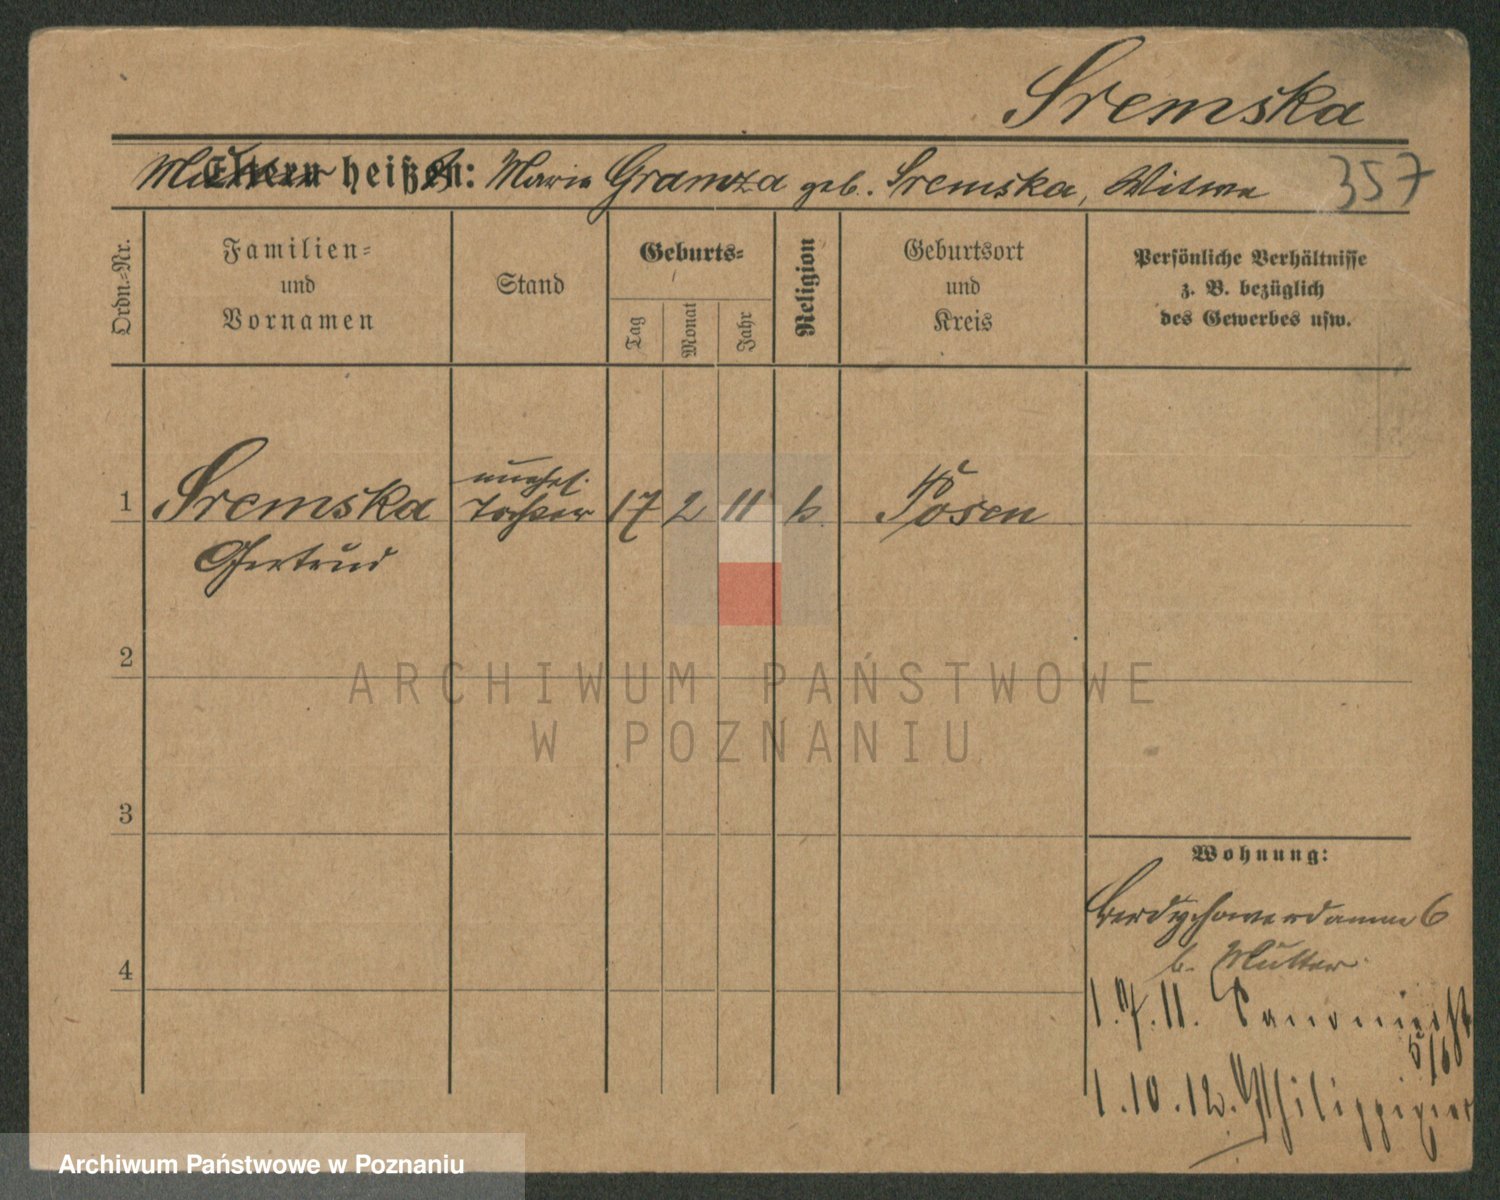 Sremska
Mutter heißt: Marie Gramza geb. Sremska, Witwe 357
Ordn.-Nr.
Familien-
und
Vornamen
Stand
Geburts-
Tag
Monat
Jahr
Religion
Geburtsort
und
Kreis
Persönliche Verhältnisse
z. B. bezüglich
des Gewerbes usw.
unehel.
1 Sremska Tochter 17 2 11 k. Posen
Gertrud
2
3
4
ARCHIWUM PAŃSTWOWE
W POZNANIU
Wohnung:
Berdychowerdamm 6
b. Mutter
1.7.11. Canonierst
5/6
1.10.12. Philippiner
Archiwum Państwowe w Poznaniu